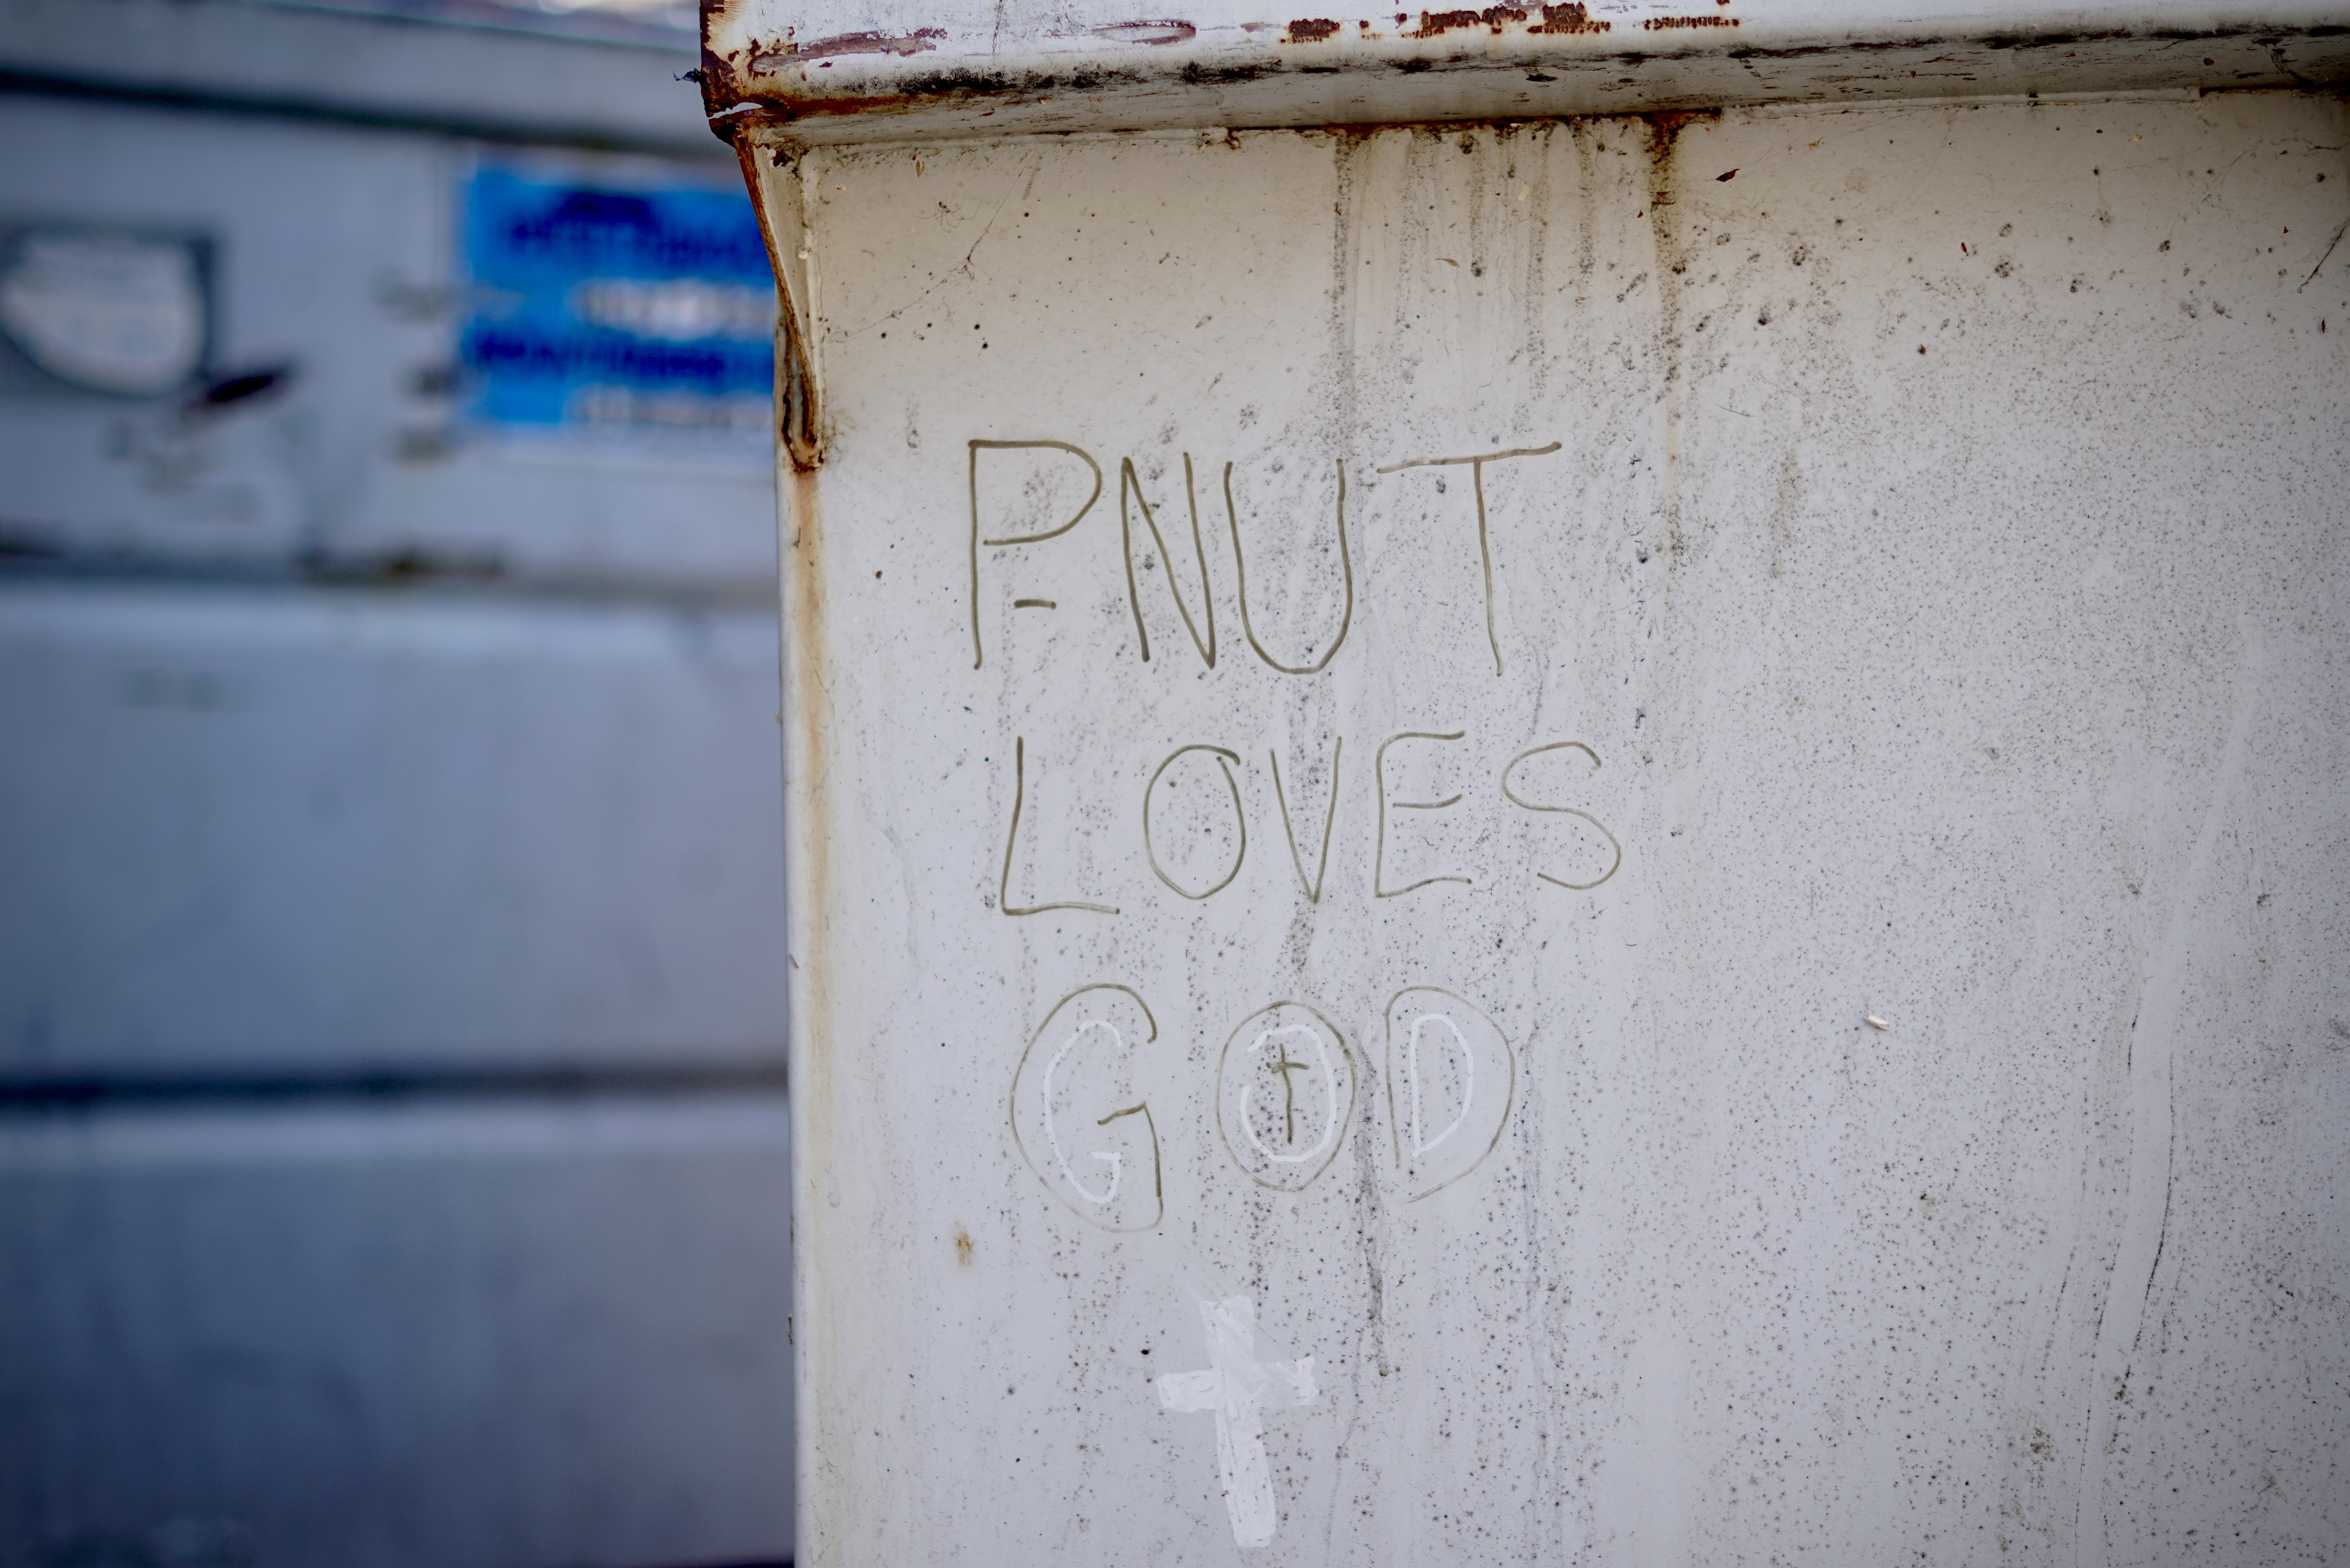 P-NUT
LOVES
GOD